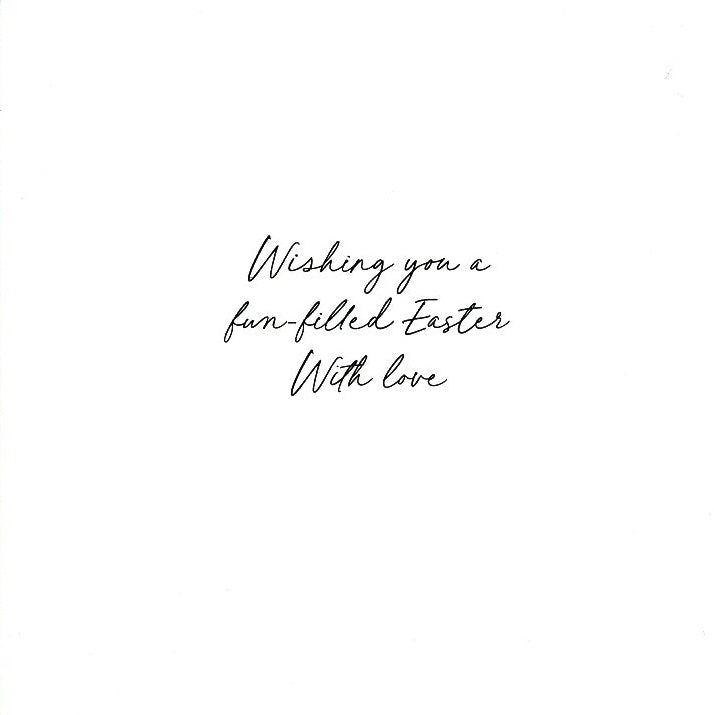 Wishing you a
fun-filled Easter
With love